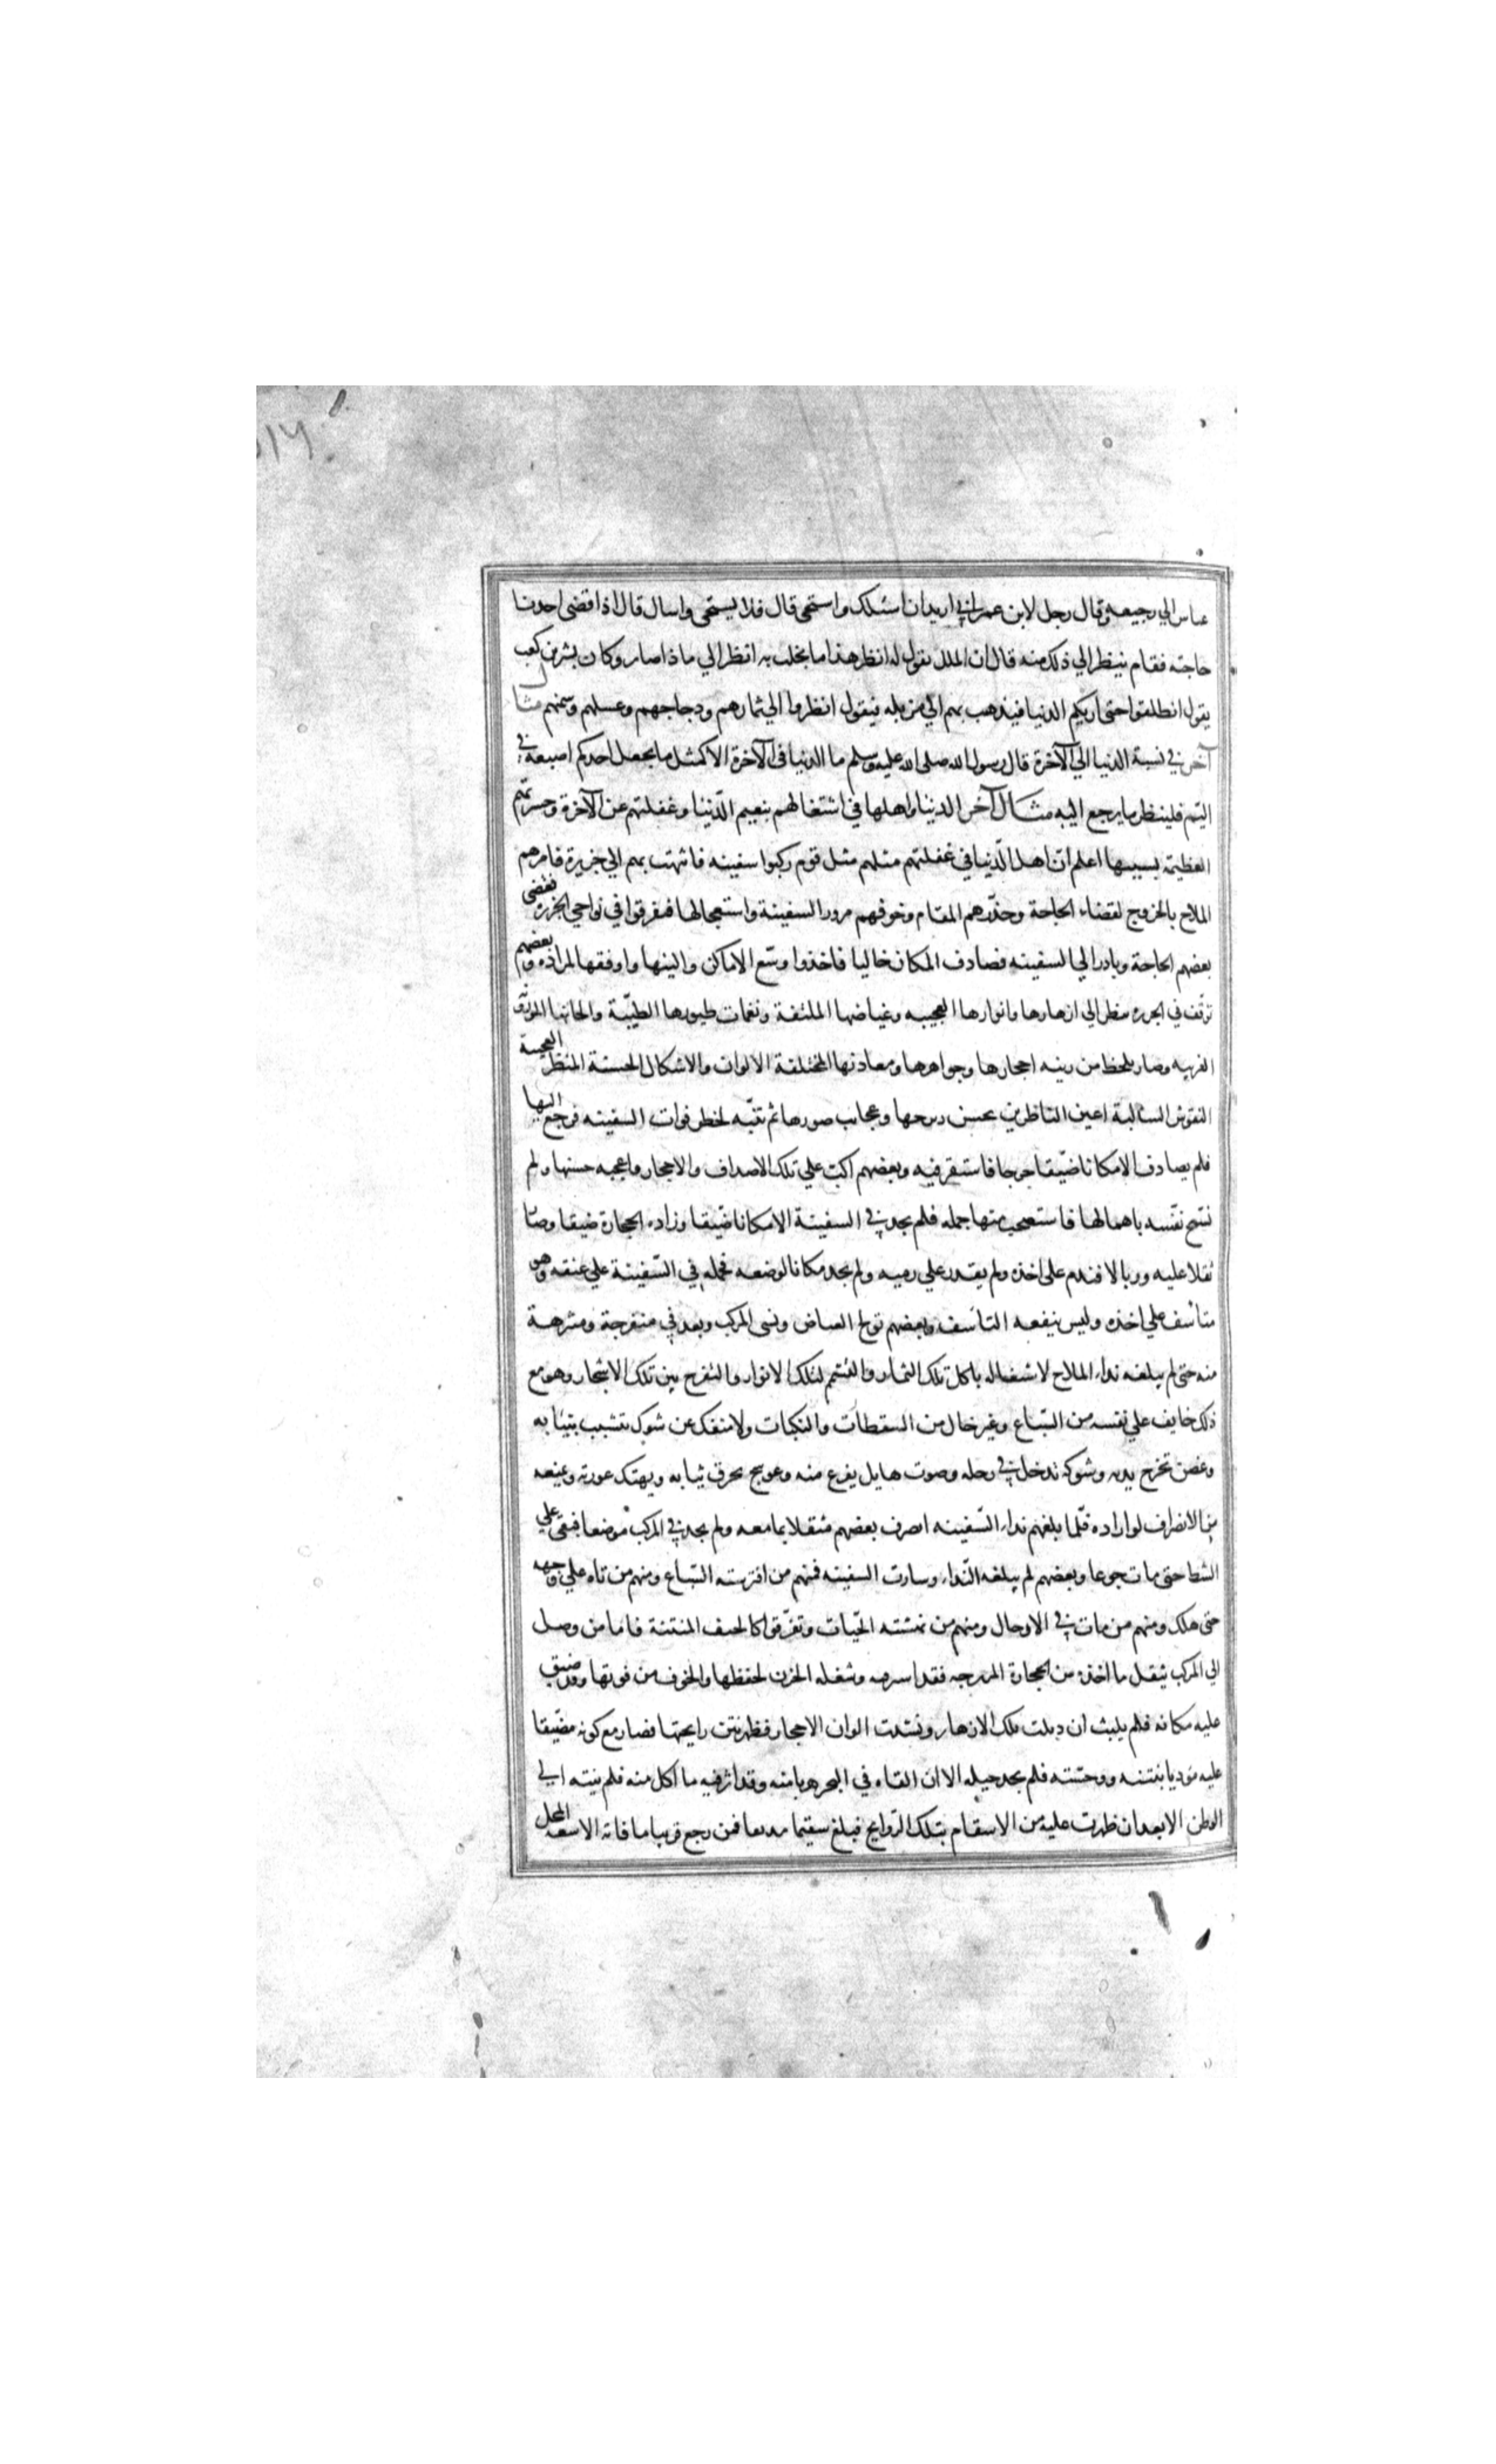 عباس الي رجيعه وقال رجل لابن عمر اني اريد ان اسئلك واستحي قال فلا يستحي واسال قال اذا قضى احدنا
حاجته فقام ينظر الي ذلك منه قال ان الملك يقول له انظر هذا ما بخلت به انظر الي ماذا صار وكان بشر بن كعب
يقول انطلقوا حتى اريكم الدنيا فيذهب بهم الي مزبله فيقول انظروا الي ثمارهم ودجاجهم وعسلهم وسمنهم مثال
آخر في نسبة الدنيا الي الآخرة قال رسول الله صلى الله عليه وسلم ما الدنيا في الآخرة الا كمثل ما يجعل احدكم اصبعه في
اليم فلينظر ما يرجع اليه مثال آخر الدنيا واهلها في اشتغالهم بنعيم الدّنيا وغفلتهم عن الآخرة وحسرتهم
العظيمة بسببها اعلم انّ اهل الدّنيا في غفلتهم مثلهم مثل قوم ركبوا سفينه فانتهت بهم الي جزيرة فامرهم
الملاح بالخروج لقضاء الحاجة وحذّرهم المقام وخوفهم مرور السفينة واستعجالها فتفرقوا في نواحي الجزيرة فقضى
بعضهم الحاجة وبادر الي السفينه فصادف المكان خاليا فاخذوا وسع الاماكن والينها واوفقها لمراده وبعضهم
توقّف في الجزيره ينظر الي ازهارها وانوارها العجيبه وغياضها الملتفة ونغمات طيورها الطيّبة والحانها الموزونة
الغريبه وصار يلحظ من رينه احجارها وجواهرها ومعادنها المختلفة الالوان والاشكال الحسنة المنظر العجيبة
النقوش السالبة اعين الناظرين بحسن زبرجها وعجايب صورها ثم تنبّه لخطر فوات السفينه فرجع اليها
فلم يصادف الا مكانا ضيّقا حرجا فاستقر فيه وبعضهم اكبّ علي تلك الاصداف والاحجار واعجبه حسنها ولم
تسمح نفسه باهمالها فاستصحب منها جمله فلم يجد في السفينة الا مكانا ضيقا وزاده الحجارة ضيقا وصار
ثقلا عليه ووبالا فندم على اخذه ولم يقدر علي رميه ولم يجد مكانا لوضعه فحمله في السّفينة علي عنقه وهو
متأسف علي اخذه وليس ينفعه التاسف وبعضهم تولج الغياض ونسى المركب وبعد في متفرجة ومتنزهة
منه حتى لم يبلغه نداء الملاح لاشتغاله باكل تلك الثمار والتشمم لتلك الانوار والتفرج بين تلك الاشجار وهو مع
ذلك خايف علي نفسه من السّباع وغير خال من السقطات والنكبات ولا منفك عن شوك تتشبب بثيابه
وغصن تخرج بدنه وشوكه تدخل في رجله وصوت هايل يفزع منه وعوسج يخرق ثيابه ويهتك عورته ويمنعه
من الانصراف لو اراده فلمّا بلغهم نداء السّفينه انصرف بعضهم مثقلا بما معه ولم يجد في المركب موضعا فبقى علي
الشط حتى مات جوعا وبعضهم لم يبلغه النّداء وسارت السفينه فمنهم من افترسته السّباع ومنهم من تاه علي وجهه
حتى هلك ومنهم من مات في الاوحال ومنهم من نهشته الحيّات وتفرّقوا كالجيف المنتنة فاما من وصل
الي المركب بثقل ما اخذه من الحجارة المزبرجه فقد اسرته وشغله الحزن لحفظها والخوف من فوتها وقد ضيق
عليه مكانه فلم يلبث ان ذبلت تلك الازهار وفسدت الوان الاحجار فظهر نتن رايحتها فصار مع كونه مضيّقا
عليه موذيا بنتنه ووحشته فلم يجد حيله الا ان القاه في البحر هربا منه وقد اثر فيه ما اكل منه فلم ينته الي
الوطن الا بعد ان ظهرت عليه من الاسقام بتلك الرّوايح فبلغ سقيما مدنفا فمن رجع قريبا ما فاته الا سعة المحل